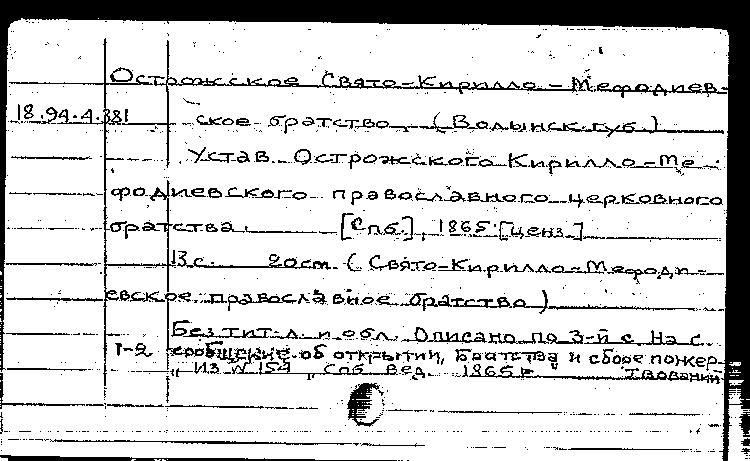 Острожсское Свято-Кирилло-Мефодиев-
18.94.4.381 ское братство. (Волынск.губ.)
Устав Острожсского Кирилло-Ме-
фодиевского православного церковного
братства. [Спб.], 1865 [ценз.]
13с. 20см (Свято-Кирилло-Мефоди-
евское православное братство)
Без тит.л. и обл. Описано по 3-й с. На с.
1-2 сообщение об открытии, Братства и сборе пожер-
"Из N 154 "Спб. Вед. 1865 г." твований